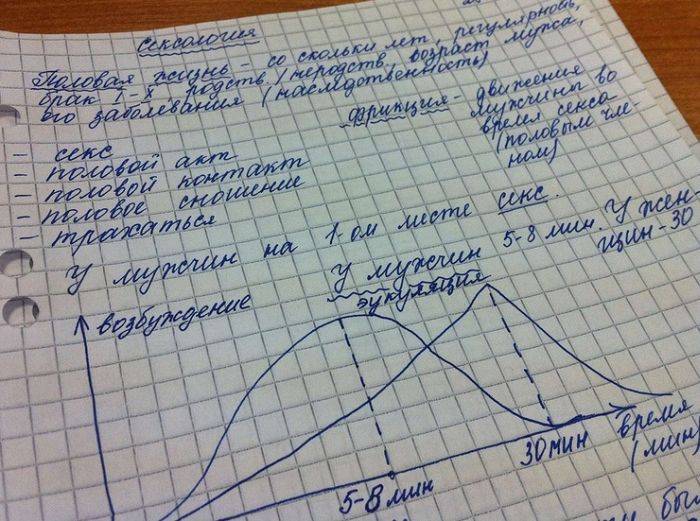 Сексология
Половая жизнь - со скольки лет, регулярность,
брак 1-й родств./неродств., возраст мужа,
его заболевания (наследственность)
фрикция - движения
мужчины во
время секса
(половым чле-
ном)
- секс
- половой акт
- половой контакт
- половое сношение
- трахаться
У мужчин на 1-ом месте секс.
У мужчин 5-8 мин. У жен-
щин-30
эукуляция
возбуждение
5-8 мин
30 мин
время
(мин)
был